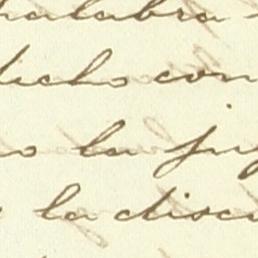 palabra
dicho con
o la ju
la discu